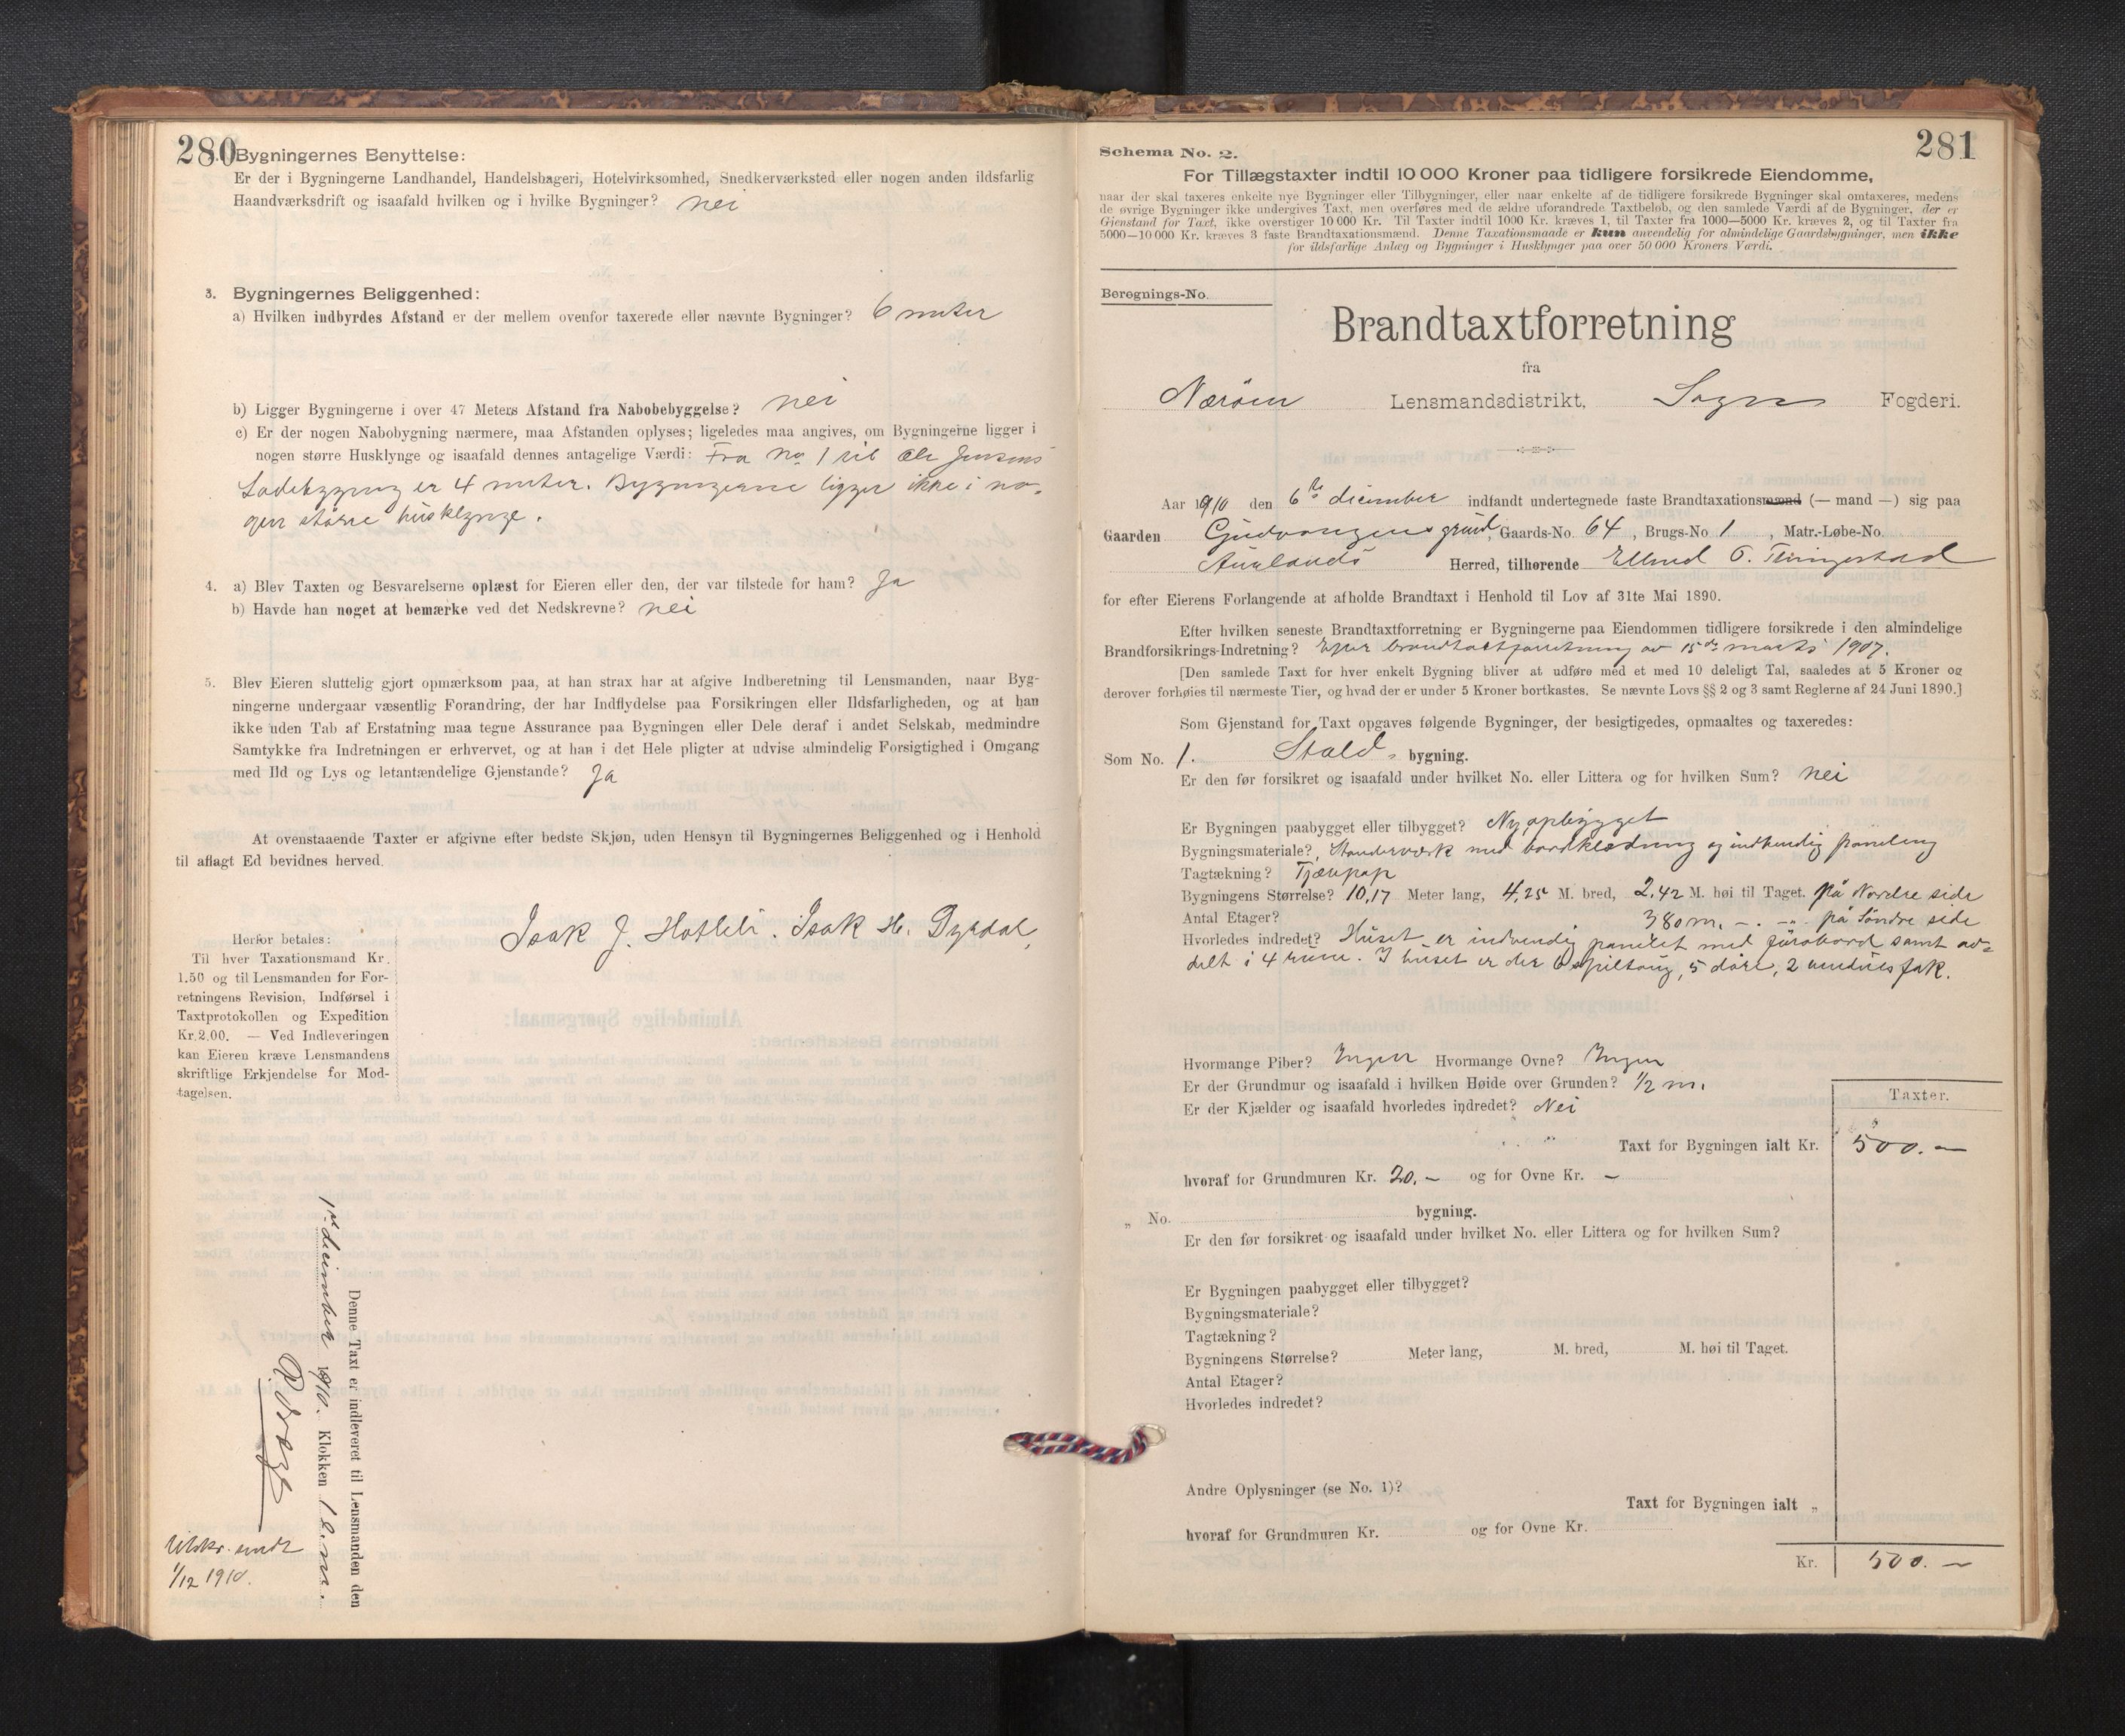 280
Bygningernes Benyttelse:
Er der i Bygningerne Landhandel, Handelsbageri, Hotelvirksomhed, Snedkerværksted eller nogen anden ildsfarlig
Haandværksdrift og isaafald hvilken og i hvilke Bygninger? nei
3. Bygningernes Beliggenhed:
a) Hvilken indbyrdes Afstand er der mellem ovenfor taxerede eller nævnte Bygninger? 6 meter
b) Ligger Bygningerne i over 47 Meters Afstand fra Nabobebyggelse? nei
c) Er der nogen Nabobygning nærmere, maa Afstanden oplyses; ligeledes maa angives, om Bygningerne ligger i
nogen større Husklynge og isaafald dennes antagelige Værdi: Fra no 1 til Ole Jensens
Ladebygning er 4 meter. Bygningerne ligger ikke i no-
gen større husklynge.
4. a) Blev Taxten og Besvarelserne oplæst for Eieren eller den, der var tilstede for ham? Ja
b) Havde han noget at bemærke ved det Nedskrevne? nei
5. Blev Eieren sluttelig gjort opmærksom paa, at han strax har at afgive Indberetning til Lensmanden, naar Byg-
ningerne undergaar væsentlig Forandring, der har Indflydelse paa Forsikringen eller Ildsfarligheden, og at han
ikke uden Tab af Erstatning maa tegne Assurance paa Bygningen eller Dele deraf i andet Selskab, medmindre
Samtykke fra Indretningen er erhvervet, og at han i det Hele pligter at udvise almindelig Forsigtighed i Omgang
med Ild og Lys og letantændelige Gjenstande? Ja
At ovenstaaende Taxter er afgivne efter bedste Skjøn, uden Hensyn til Bygningernes Beliggenhed og i Henhold
til aflagt Ed bevidnes herved.
Isak J. Hotlebi. Isak H. Dyrdal,
Herfor betales:
Til hver Taxationsmand Kr.
1.50 og til Lensmanden for For-
retningens Revision, Indførsel i
Taxtprotokollen og Expedition
Kr. 2.00. — Ved Indleveringen
kan Eieren kræve Lensmandens
skriftlige Erkjendelse for Mod-
tagelsen.
Denne Taxt er indleveret til Lensmanden den
1ste december 1910. Klokken 1 e.m.
Utskr. sendt
1/12 1910.
281
Schema No. 2.
For Tillægstaxter indtil 10 000 Kroner paa tidligere forsikrede Eiendomme,
naar der skal taxeres enkelte nye Bygninger eller Tilbygninger, eller naar enkelte af de tidligere forsikrede Bygninger skal omtaxeres, medens
de øvrige Bygninger ikke undergives Taxt, men overføres med de ældre uforandrede Taxtbeløb, og den samlede Værdi af de Bygninger, der er
Gjenstand for Taxt, ikke overstiger 10 000 Kr. Til Taxter indtil 1000 Kr. kræves 1, til Taxter fra 1000—5000 Kr. kræves 2, og til Taxter fra
5000—10 000 Kr. kræves 3 faste Brandtaxationsmænd. Denne Taxationsmaade er kun anvendelig for almindelige Gaardsbygninger, men ikke
for ildsfarlige Anlæg og Bygninger i Husklynger paa over 50 000 Kroners Værdi.
Beregnings-No.
Brandtaxtforretning
fra
Nærøen Lensmandsdistrikt, Sogn Fogderi.
Aar 1910 den 6te december indfandt undertegnede faste Brandtaxationsmænd (— mand —) sig paa
Gaarden Gudvangens grund, Gaards-No. 64, Brugs-No. 1, Matr.-Løbe-No.
Aurlands Herred, tilhørende Ellend O.
for efter Eierens Forlangende at afholde Brandtaxt i Henhold til Lov af 31te Mai 1890.
Efter hvilken seneste Brandtaxtforretning er Bygningerne paa Eiendommen tidligere forsikrede i den almindelige
Brandforsikrings-Indretning? Efter brandtaxtforretning av 15de marts 1907.
[Den samlede Taxt for hver enkelt Bygning bliver at udføre med et med 10 deleligt Tal, saaledes at 5 Kroner og
derover forhøies til nærmeste Tier, og hvad der er under 5 Kroner bortkastes. Se nævnte Lovs §§ 2 og 3 samt Reglerne af 24 Juni 1890.]
Som Gjenstand for Taxt opgaves følgende Bygninger, der besigtigedes, opmaaltes og taxeredes:
Som No. 1. Stald bygning.
Er den før forsikret og isaafald under hvilket No. eller Littera og for hvilken Sum? nei
Er Bygningen paabygget eller tilbygget? Ny opbygget
Bygningsmateriale? Standerværk med bordklædning og indvendig paneling
Tagtækning? Tjærepap
Bygningens Størrelse? 10,17 Meter lang, 4,25 M. bred, 2.42 M. høi til Taget. på Nordre side
Antal Etager? 380 m. — på Søndre side
Hvorledes indredet? Huset er indvendig panelet med furubord samt av-
delt i 4 rum. I huset er der 6 spiltaug, 5 døre, 2 vinduesfak.
Hvormange Piber? Ingen Hvormange Ovne? Ingen
Er der Grundmur og isaafald i hvilken Høide over Grunden? 1/2 m.
Er der Kjælder og isaafald hvorledes indredet? Nei
Taxter.
Taxt for Bygningen ialt Kr. 500. —
hvoraf for Grundmuren Kr. 20. — og for Ovne Kr. —
„ No. bygning.
Er den før forsikret og isaafald under hvilket No. eller Littera og for hvilken Sum?
Er Bygningen paabygget eller tilbygget?
Bygningsmateriale?
Tagtækning?
Bygningens Størrelse? Meter lang, M. bred, M. høi til Taget.
Antal Etager?
Hvorledes indredet?
Andre Oplysninger (se No. 1)?
Taxt for Bygningen ialt „
hvoraf for Grundmuren Kr. og for Ovne Kr.
Kr. 500. —